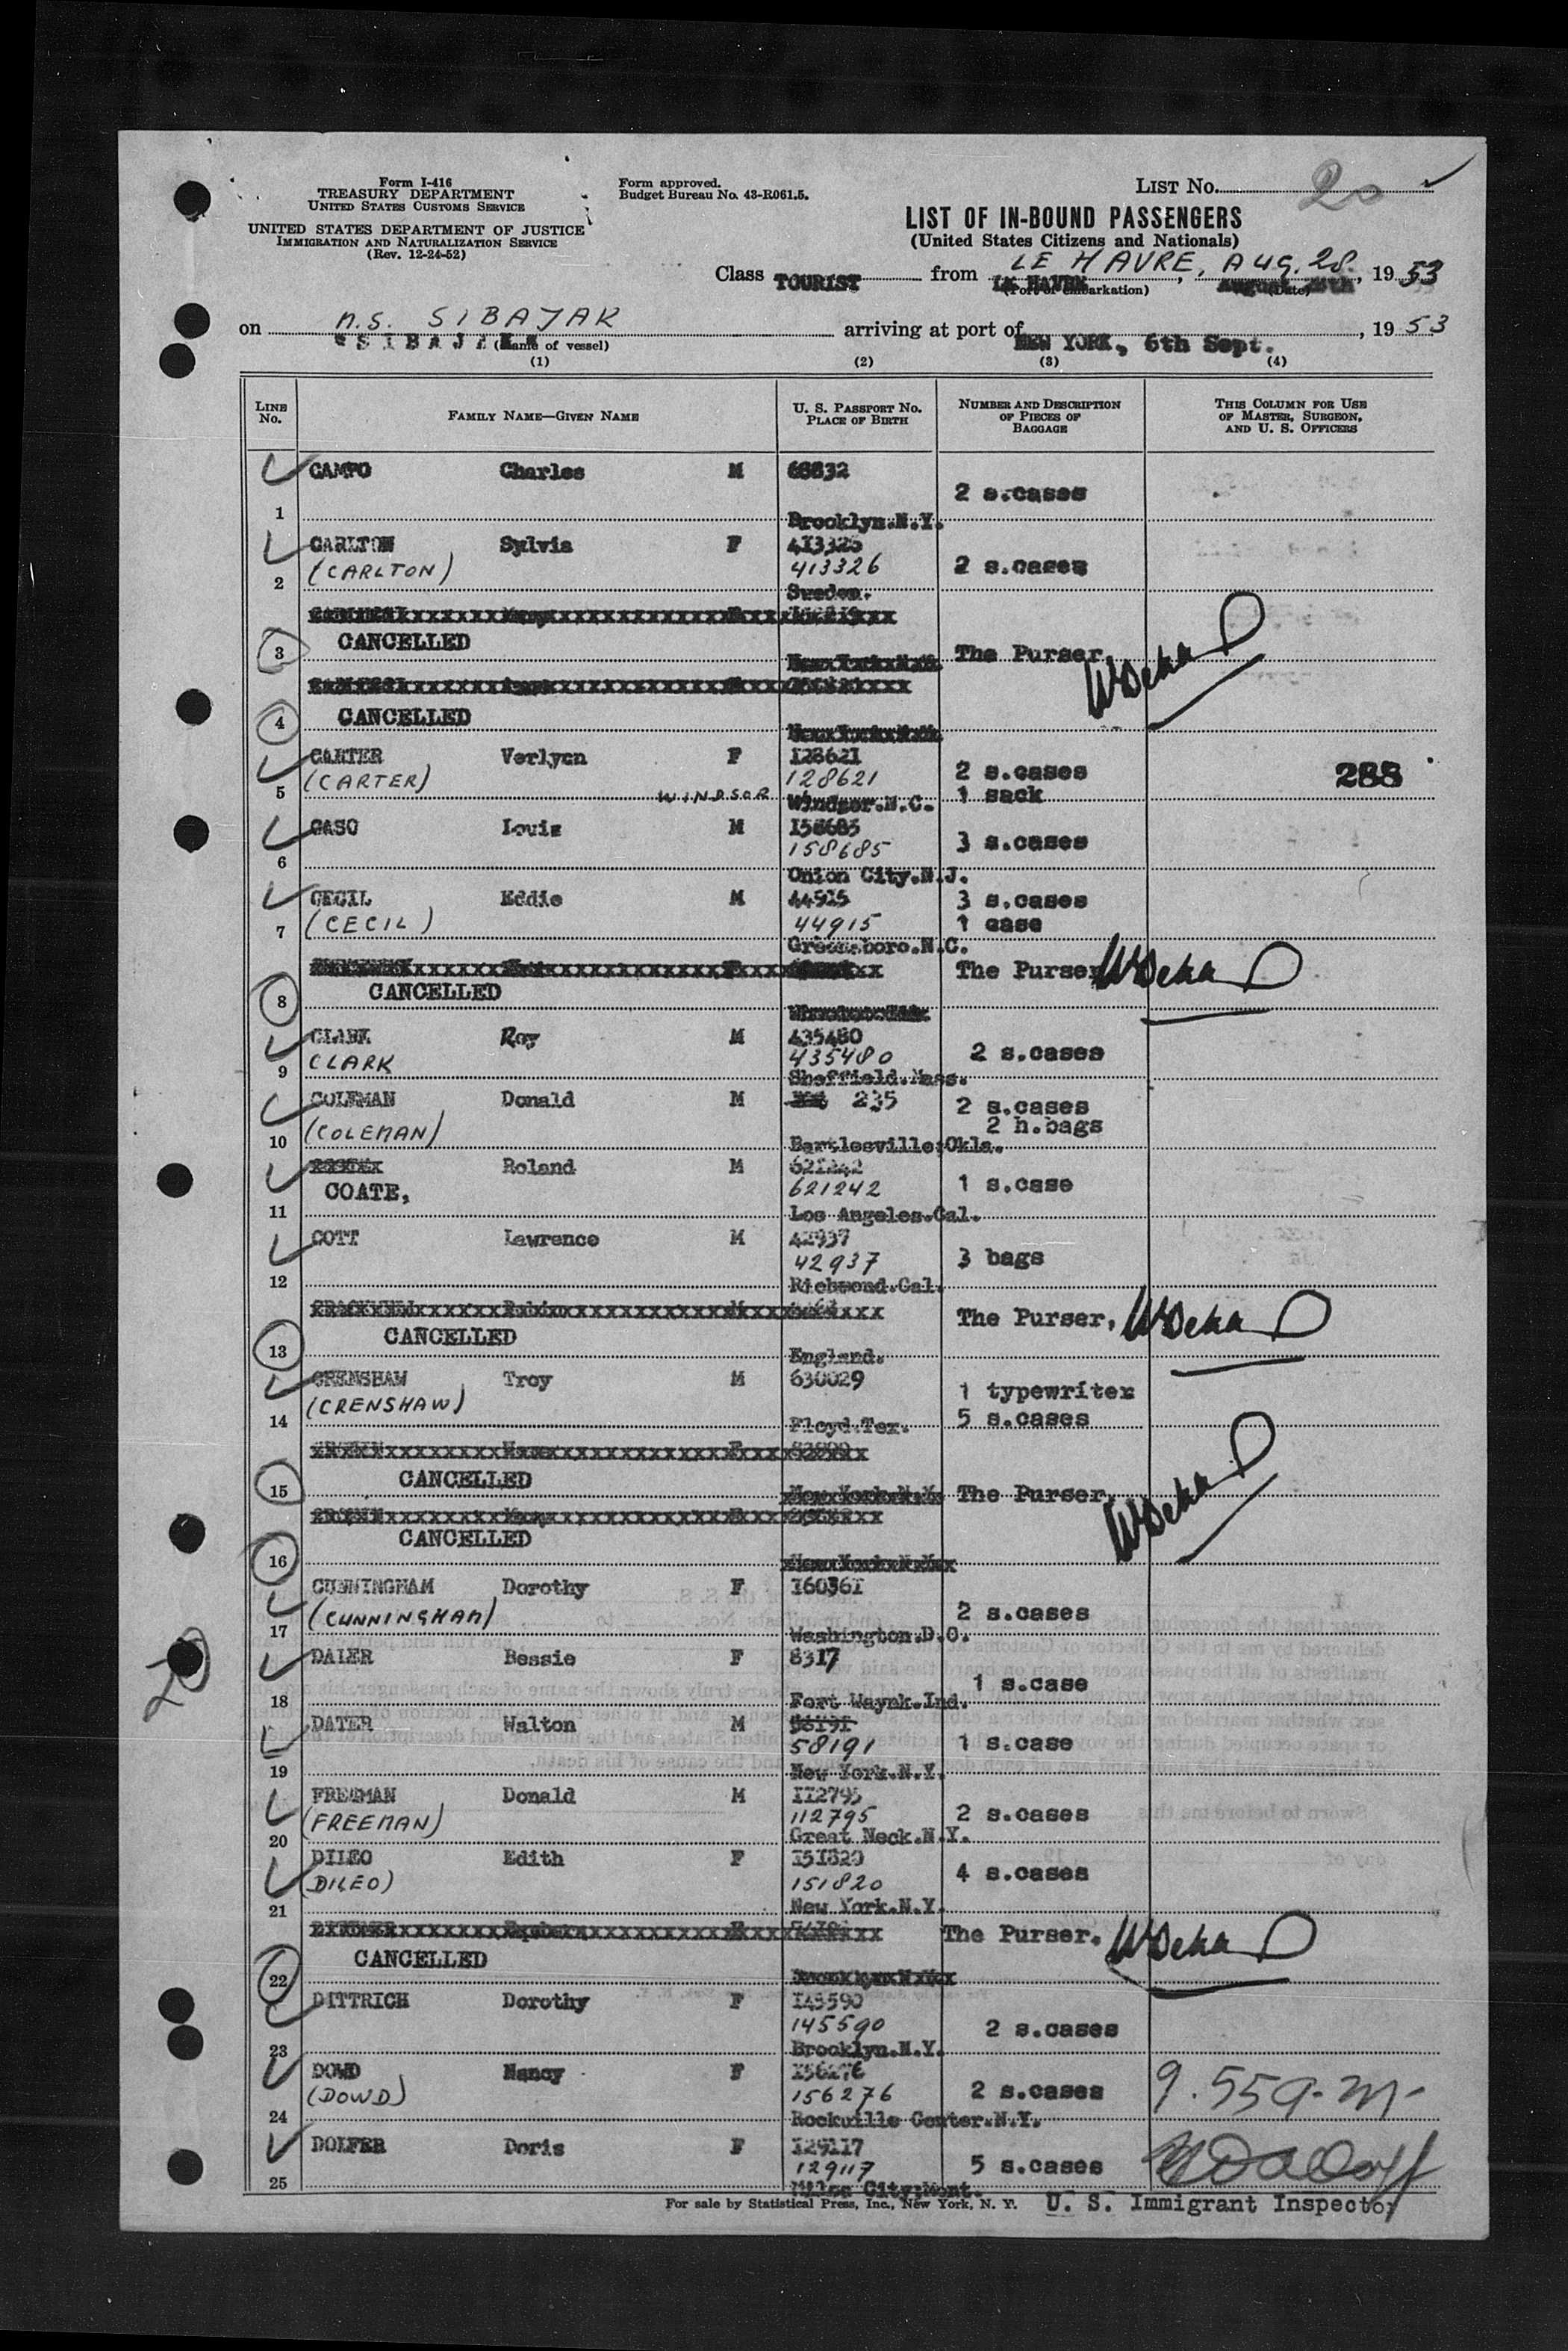 Form I-416
TREASURY DEPARTMENT
UNITED STATES CUSTOMS SERVICE
UNITED STATES DEPARTMENT OF JUSTICE
IMMIGRATION AND NATURALIZATION SERVICE
(Rev. 12-24-52)
Form approved.
Budget Bureau No. 43-R061.5.
LIST NO. 20
LIST OF IN-BOUND PASSENGERS
(United States Citizens and Nationals)
LE HAVRE, AUG. 28.
Class TOURIST from LE HAVRE, August 28th, 1953
(Port of embarkation) (Date)
M.S. SIBAJAK
on "SIBAJAK" arriving at port of NEW YORK, 6th Sept., 1953
(Name of vessel)
(1) (2) (3) (4)
LINE NO.
FAMILY NAME—GIVEN NAME
U. S. PASSPORT NO.
PLACE OF BIRTH
NUMBER AND DESCRIPTION
OF PIECES OF
BAGGAGE
THIS COLUMN FOR USE
OF MASTER, SURGEON,
AND U. S. OFFICERS
CAMPO Charles M 68832
2 s.cases
1 Brooklyn.N.Y.
CARLTON Sylvia F 413326
(CARLTON) 413326 2 s.cases
2 Sweden.
CANCELLED
3 The Purser,
CANCELLED
4
CARTER Verlynn F 128621
(CARTER) 128621 2 s.cases 288
5 WINDSOR Windsor.N.C. 1 sack
CASO Louis M 158685
158685 3 s.cases
6 Onion City.N.J.
CECIL Eddie M 44915 3 s.cases
(CECIL) 44915 1 case
7 Greensboro.N.C.
The Purser
CANCELLED
8
CLARK Roy M 435480
CLARK 435480 2 s.cases
9 Sheffield.Mass.
COLEMAN Donald M 235 2 s.cases
(COLEMAN) 2 h.bags
10 Bartlesville.Okla.
Roland M 621242
COATE, 621242 1 s.case
11 Los Angeles.Cal.
COTT Lawrence M 42937
42937 3 bags
12 Richmond.Cal.
The Purser,
CANCELLED
13 England.
CRENSHAW Troy M 630029
(CRENSHAW) 1 typewriter
14 Floyd.Tex. 5 s.cases
CANCELLED
15 New York.N.Y. The Purser,
CANCELLED
16
CUNNINGHAM Dorothy F 160361
(CUNNINGHAM) 2 s.cases
17 Washington.D.C.
DALER Bessie F 8317
1 s.case
18 Fort Wayne.Ind.
DATER Walton M 58191
58191 1 s.case
19 New York.N.Y.
FREEMAN Donald M 112795
(FREEMAN) 112795 2 s.cases
20 Great Neck.N.Y.
DILEO Edith F 151820
(DILEO) 151820 4 s.cases
21 New York.N.Y.
The Purser,
CANCELLED
22
DITTRICH Dorothy F 145590
145590 2 s.cases
23 Brooklyn.N.Y.
DOWD Nancy F 156276
(DOWD) 156276 2 s.cases 9.55 a.m.
24 Rockville Center.N.Y.
DOLFER Doris F 129117
129117 5 s.cases
25 Miles City.Mont.
20
For sale by Statistical Press, Inc., New York, N. Y. U. S. Immigrant Inspector